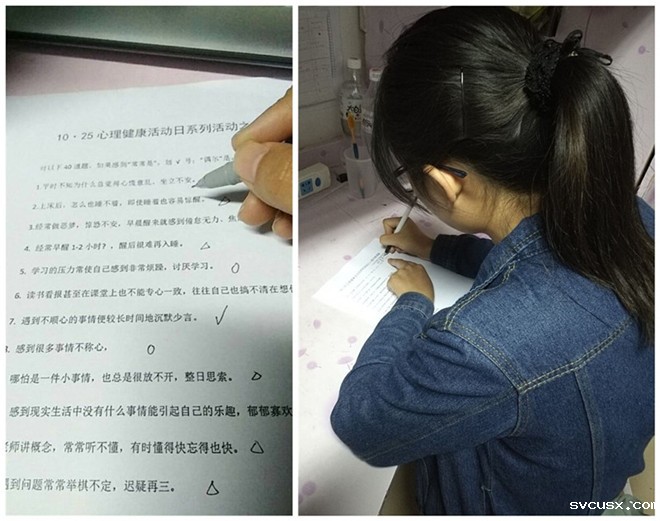 10·25心理健康活动日系列活动之
对以下40道题,如果感到“常常是”,划√号;“偶尔”是
1.平时不知为什么总觉得心慌意乱,坐立不安。
2.上床后,怎么也睡不着,即使睡着也容易惊醒。△
3.经常做恶梦,惊恐不安,早晨醒来就感到倦怠无力、焦
4. 经常早醒1-2小时?,醒后很难再入睡。△
5. 学习的压力常使自己感到非常烦躁,讨厌学习。○
6. 读书看报甚至在课堂上也不能专心一致,往往自己也搞不清在想什
7. 遇到不顺心的事情便较长时间地沉默少言。√
感到很多事情不称心, ○
哪怕是一件小事情,也总是很放不开,整日思索。△
感到现实生活中没有什么事情能引起自己的乐趣,郁郁寡欢
老师讲概念,常常听不懂,有时懂得快忘得也快。△
遇到问题常常举棋不定,迟疑再三。△
svcusx.com